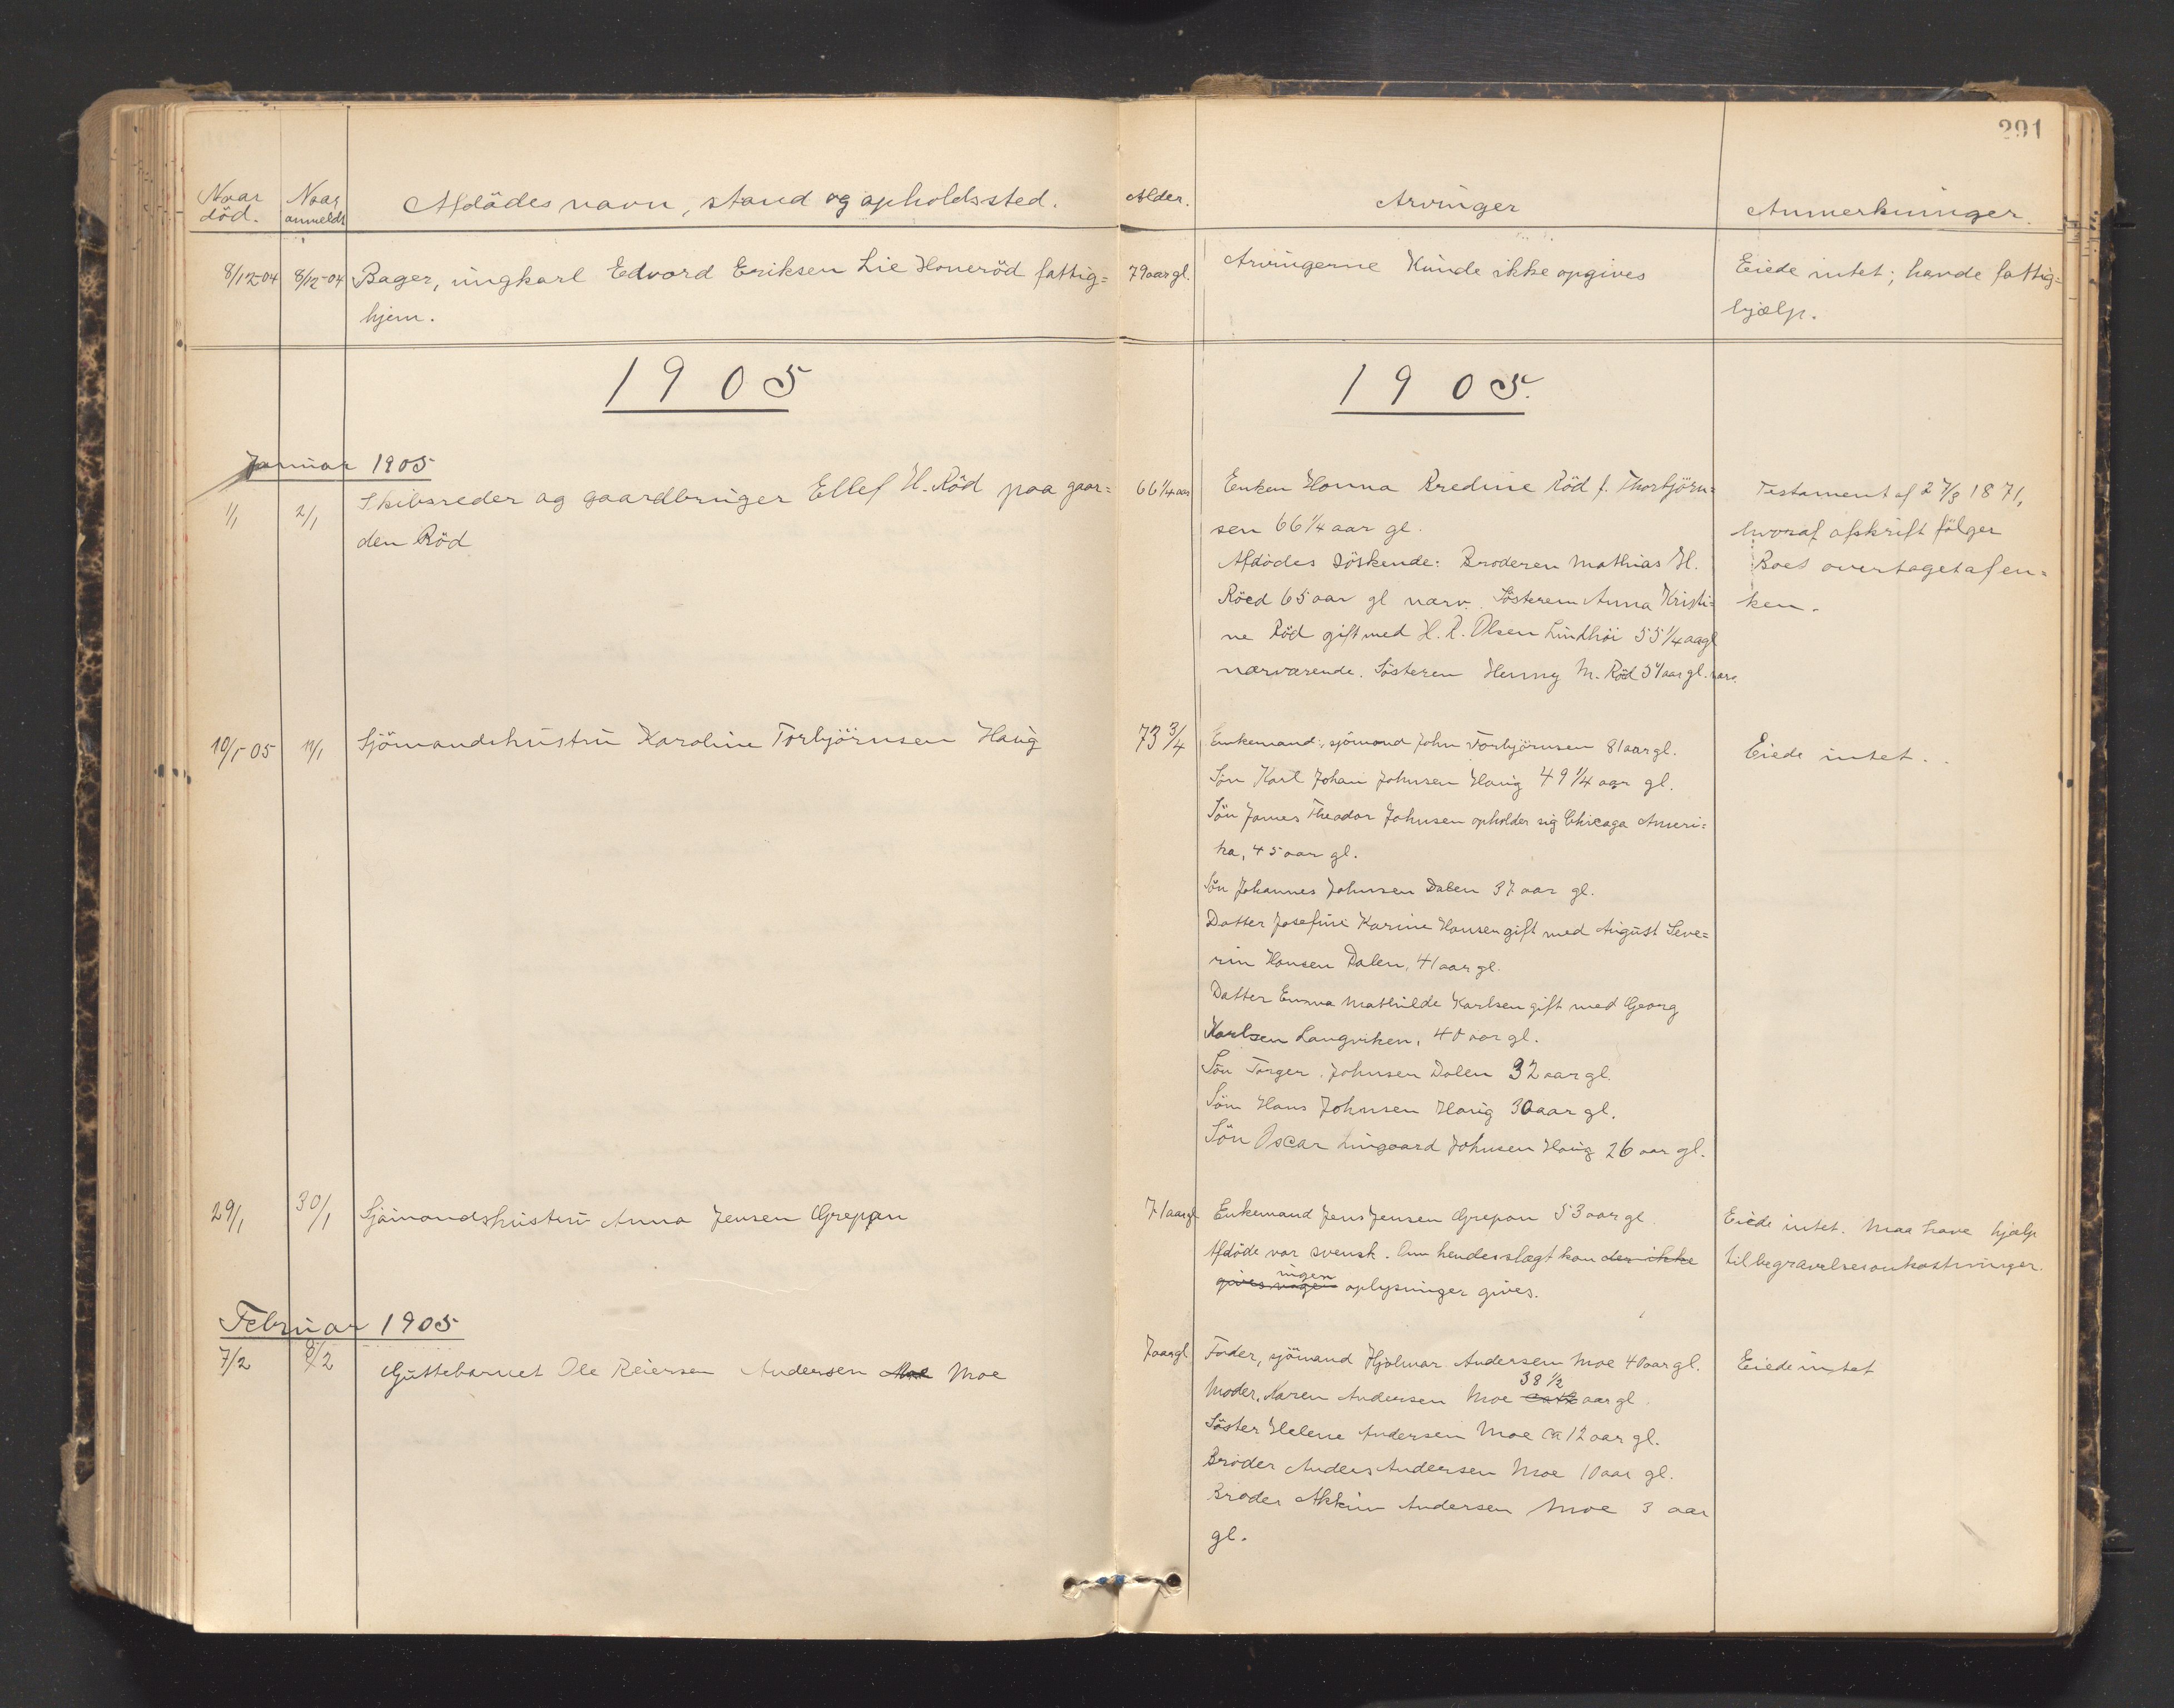 291
Naar død. Naar anmeldt Afdödes navn, stand og opholdssted. Alder. Arvinger Anmerkninger.
8/12-04 8/12-04 Bager, ungkarl Edvard Eriksen Lie Honeröd fattig= 79 aar gl. Arvingerne kunde ikke opgives Eiede intet; havde fattig=
hjem. hjælp.
1905 1905.
Januar 1905
1/1 2/1 Skibsreder og gaardbruger Ellef H. Röd paa gaar= 66 1/4 aar Enken Hanna Bredine Röd f. Thorbjörn= Testament af 27/3 1871,
den Röd sen 66 1/4 aar gl. hvoraf afskrift fölger
Afdödes söskende: Broderen Mathias H. Boet overtaget af en=
Röed 65 aar gl nærv. Søsteren Anna Kristi= ken.
ne Röd gift med H. R. Olsen Lindhöi 55 1/4 aagl
nærværende. Søsteren Henny M. Röd 51 aar gl. nærv.
10/1-05 11/1 Sjömandshustru Karoline Torbjörnsen Haug 73 3/4 Enkemand:, sjömand John Torbjörnsen 81 aar gl. Eiede intet.
Søn Karl Johan Johnsen Haug 49 1/4 aar gl.
Sön James Theodor Johnsen opholder sig Chicago Ameri=
ka, 45 aar gl.
Sön Johannes Johnsen Dalen 37 aar gl.
Datter Josefine Karine Hansen gift med August Seve=
rin Hansen Dalen, 41 aar gl.
Datter Emma Mathilde Karlsen gift med Georg
Karlsen Langviken, 40 aar gl.
Sön Torger Johnsen Dalen 32 aar gl.
Sön Hans Johnsen Haug 30 aar gl.
Sön Oscar Lingaard Johnsen Haug 26 aar gl.
29/1 30/1 Sjömandshustru Anna Jensen Grepan 71 aar gl Enkemand Jens Jensen Grepan 53 aar gl. Eiede intet. Maa have hjælp
Afdöde var svensk. Om hendes slægt kan der ikke til begravelsesomkostninger.
gives nogen ingen oplysninger gives.
Februar 1905
7/2 8/2 Guttebarnet Ole Reiersen Andersen Moe Moe 7 aar gl Fader, sjömand Hjalmar Andersen Moe 40 aar gl. Eiede intet
Moder, Karen Andersen Moe 38 1/2 aar gl.
Söster Helene Andersen Moe ca 12 aar gl.
Broder Anders Andersen Moe 10 aar gl.
Broder Andersen Moe 3 aar
gl.